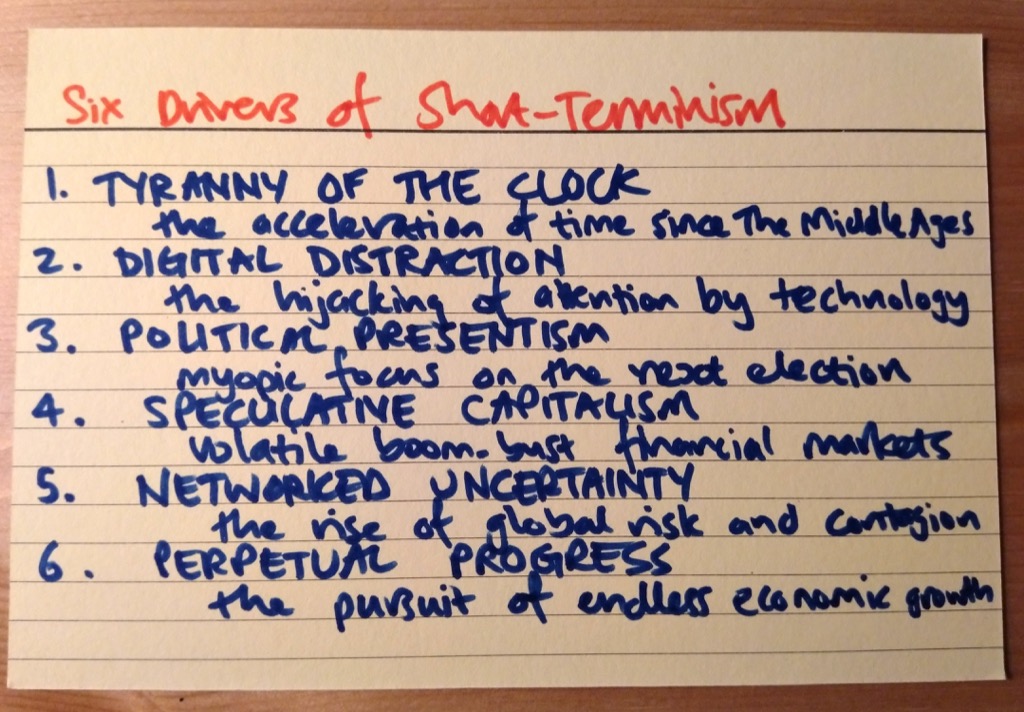 Six Drivers of Short-Terminism
1. TYRANNY OF THE CLOCK
the acceleration of time since The Middle Ages
2. DIGITAL DISTRACTION
the hijacking of attention by technology
3. POLITICAL PRESENTISM
myopic focus on the next election
4. SPECULATIVE CAPITALISM
volatile boom-bust financial markets
5. NETWORKED UNCERTAINTY
the rise of global risk and contagion
6. PERPETUAL PROGRESS
the pursuit of endless economic growth